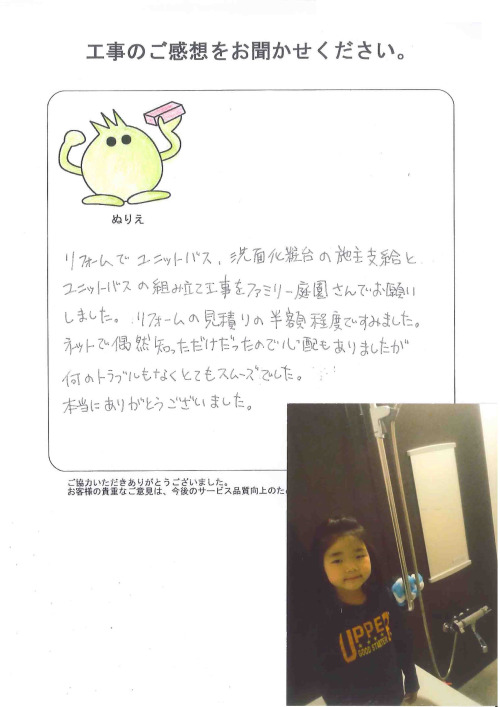 工事のご感想をお聞かせください。
ぬりえ
リフォームでユニットバス、洗面化粧台の施主支給と
ユニットバスの組み立て工事をファミリー庭園さんでお願い
しました。リフォームの見積りの半額程度ですみました。
ネットで偶然知っただけだったので心配もありましたが
何のトラブルもなくとてもスムーズでした。
本当にありがとうございました。
ご協力いただきありがとうございました。
お客様の貴重なご意見は、今後のサービス品質向上のため
UPPE
GOOD STARTER